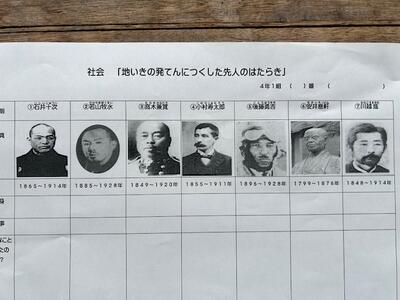 社会 「地いきの発てんにつくした先人のはたらき」
4年1組 ( )番 ( )
①石井十次 ②若山牧水 ③高木兼寛 ④小村寿太郎 ⑤後藤勇吉 ⑥安井息軒 ⑦川越進
1865〜1914年 1885〜1928年 1849〜1920年 1855〜1911年 1896〜1928年 1799〜1876年 1848〜1914年
真
身
事
なこと
たの
?